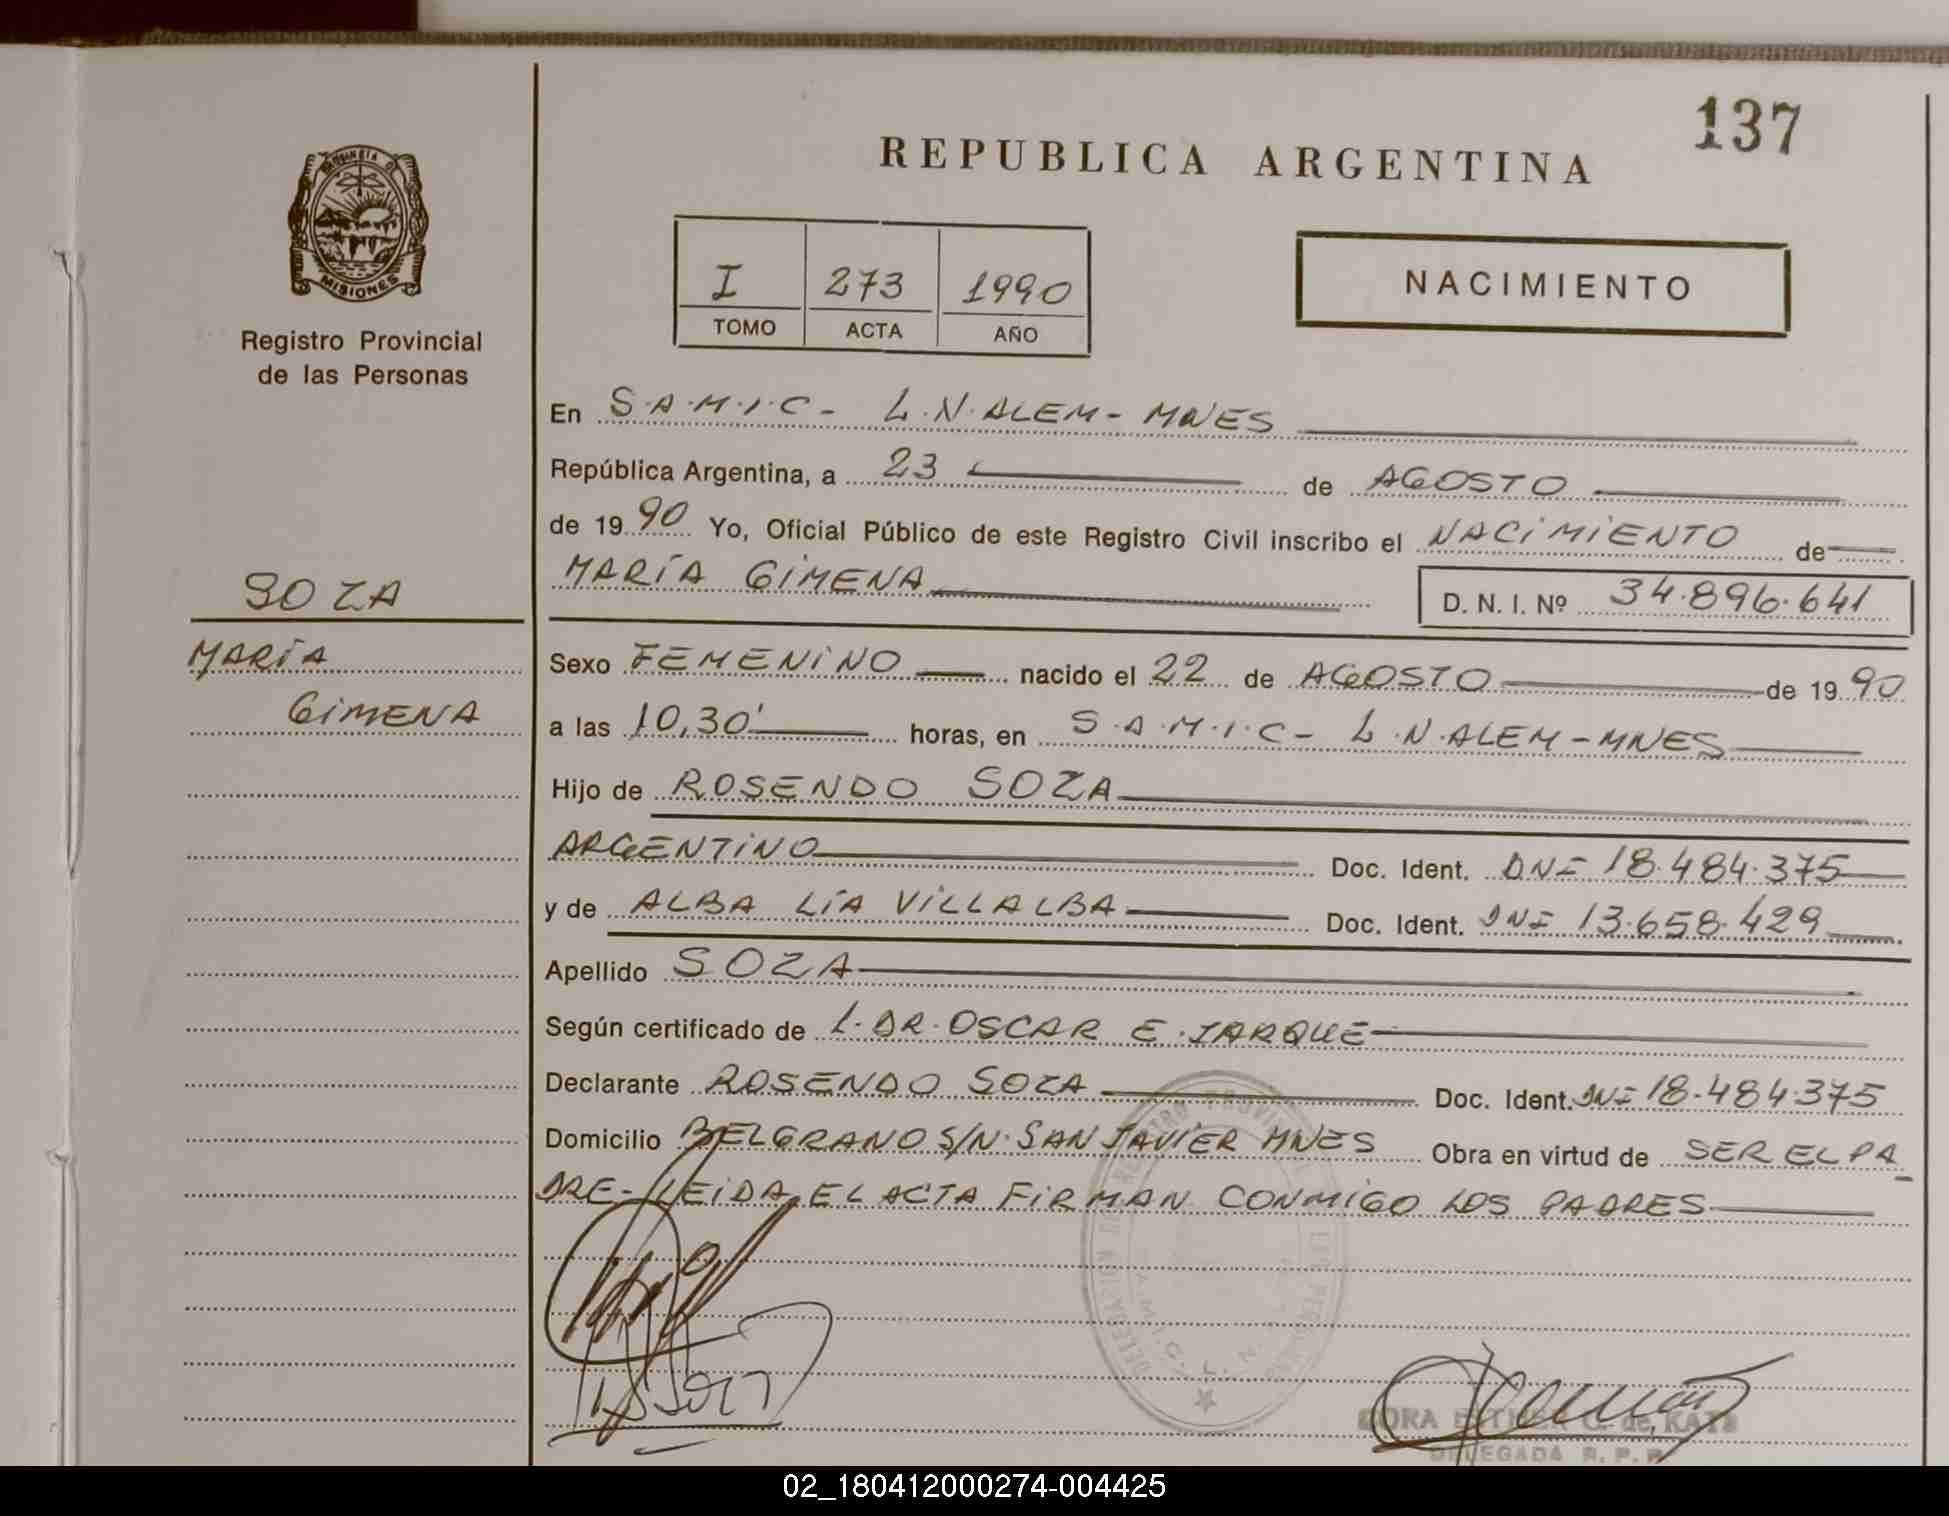 137
REPUBLICA ARGENTINA
PROVINCIA DE
MISIONES
Registro Provincial
de las Personas
I 273 1990
TOMO ACTA AÑO
NACIMIENTO
En S.A.M.I.C- L.N.ALEM- MNES
República Argentina, a 23 de AGOSTO
de 1990 Yo, Oficial Público de este Registro Civil inscribo el NACIMIENTO de
MARÍA GIMENA D. N. I. Nº 34.896.641
SOZA
MARÍA
GIMENA
Sexo FEMENINO nacido el 22 de AGOSTO de 1990
a las 10,30' horas, en S.A.M.I.C- L.N.ALEM-MNES
Hijo de ROSENDO SOZA
ARGENTINO Doc. Ident. DNI 18.484.375
y de ALBA LÍA VILLALBA Doc. Ident. DNI 13.658.429
Apellido SOZA
Según certificado de L.DR.OSCAR E.JARQUE
Declarante ROSENDO SOZA Doc. Ident. DNI 18.484.375
Domicilio BELGRANO S/N.SAN JAVIER MNES Obra en virtud de SER EL PA
DRE- LEIDA EL ACTA FIRMAN CONMIGO LOS PADRES
DELEGADA R. P. P.
02_180412000274-004425